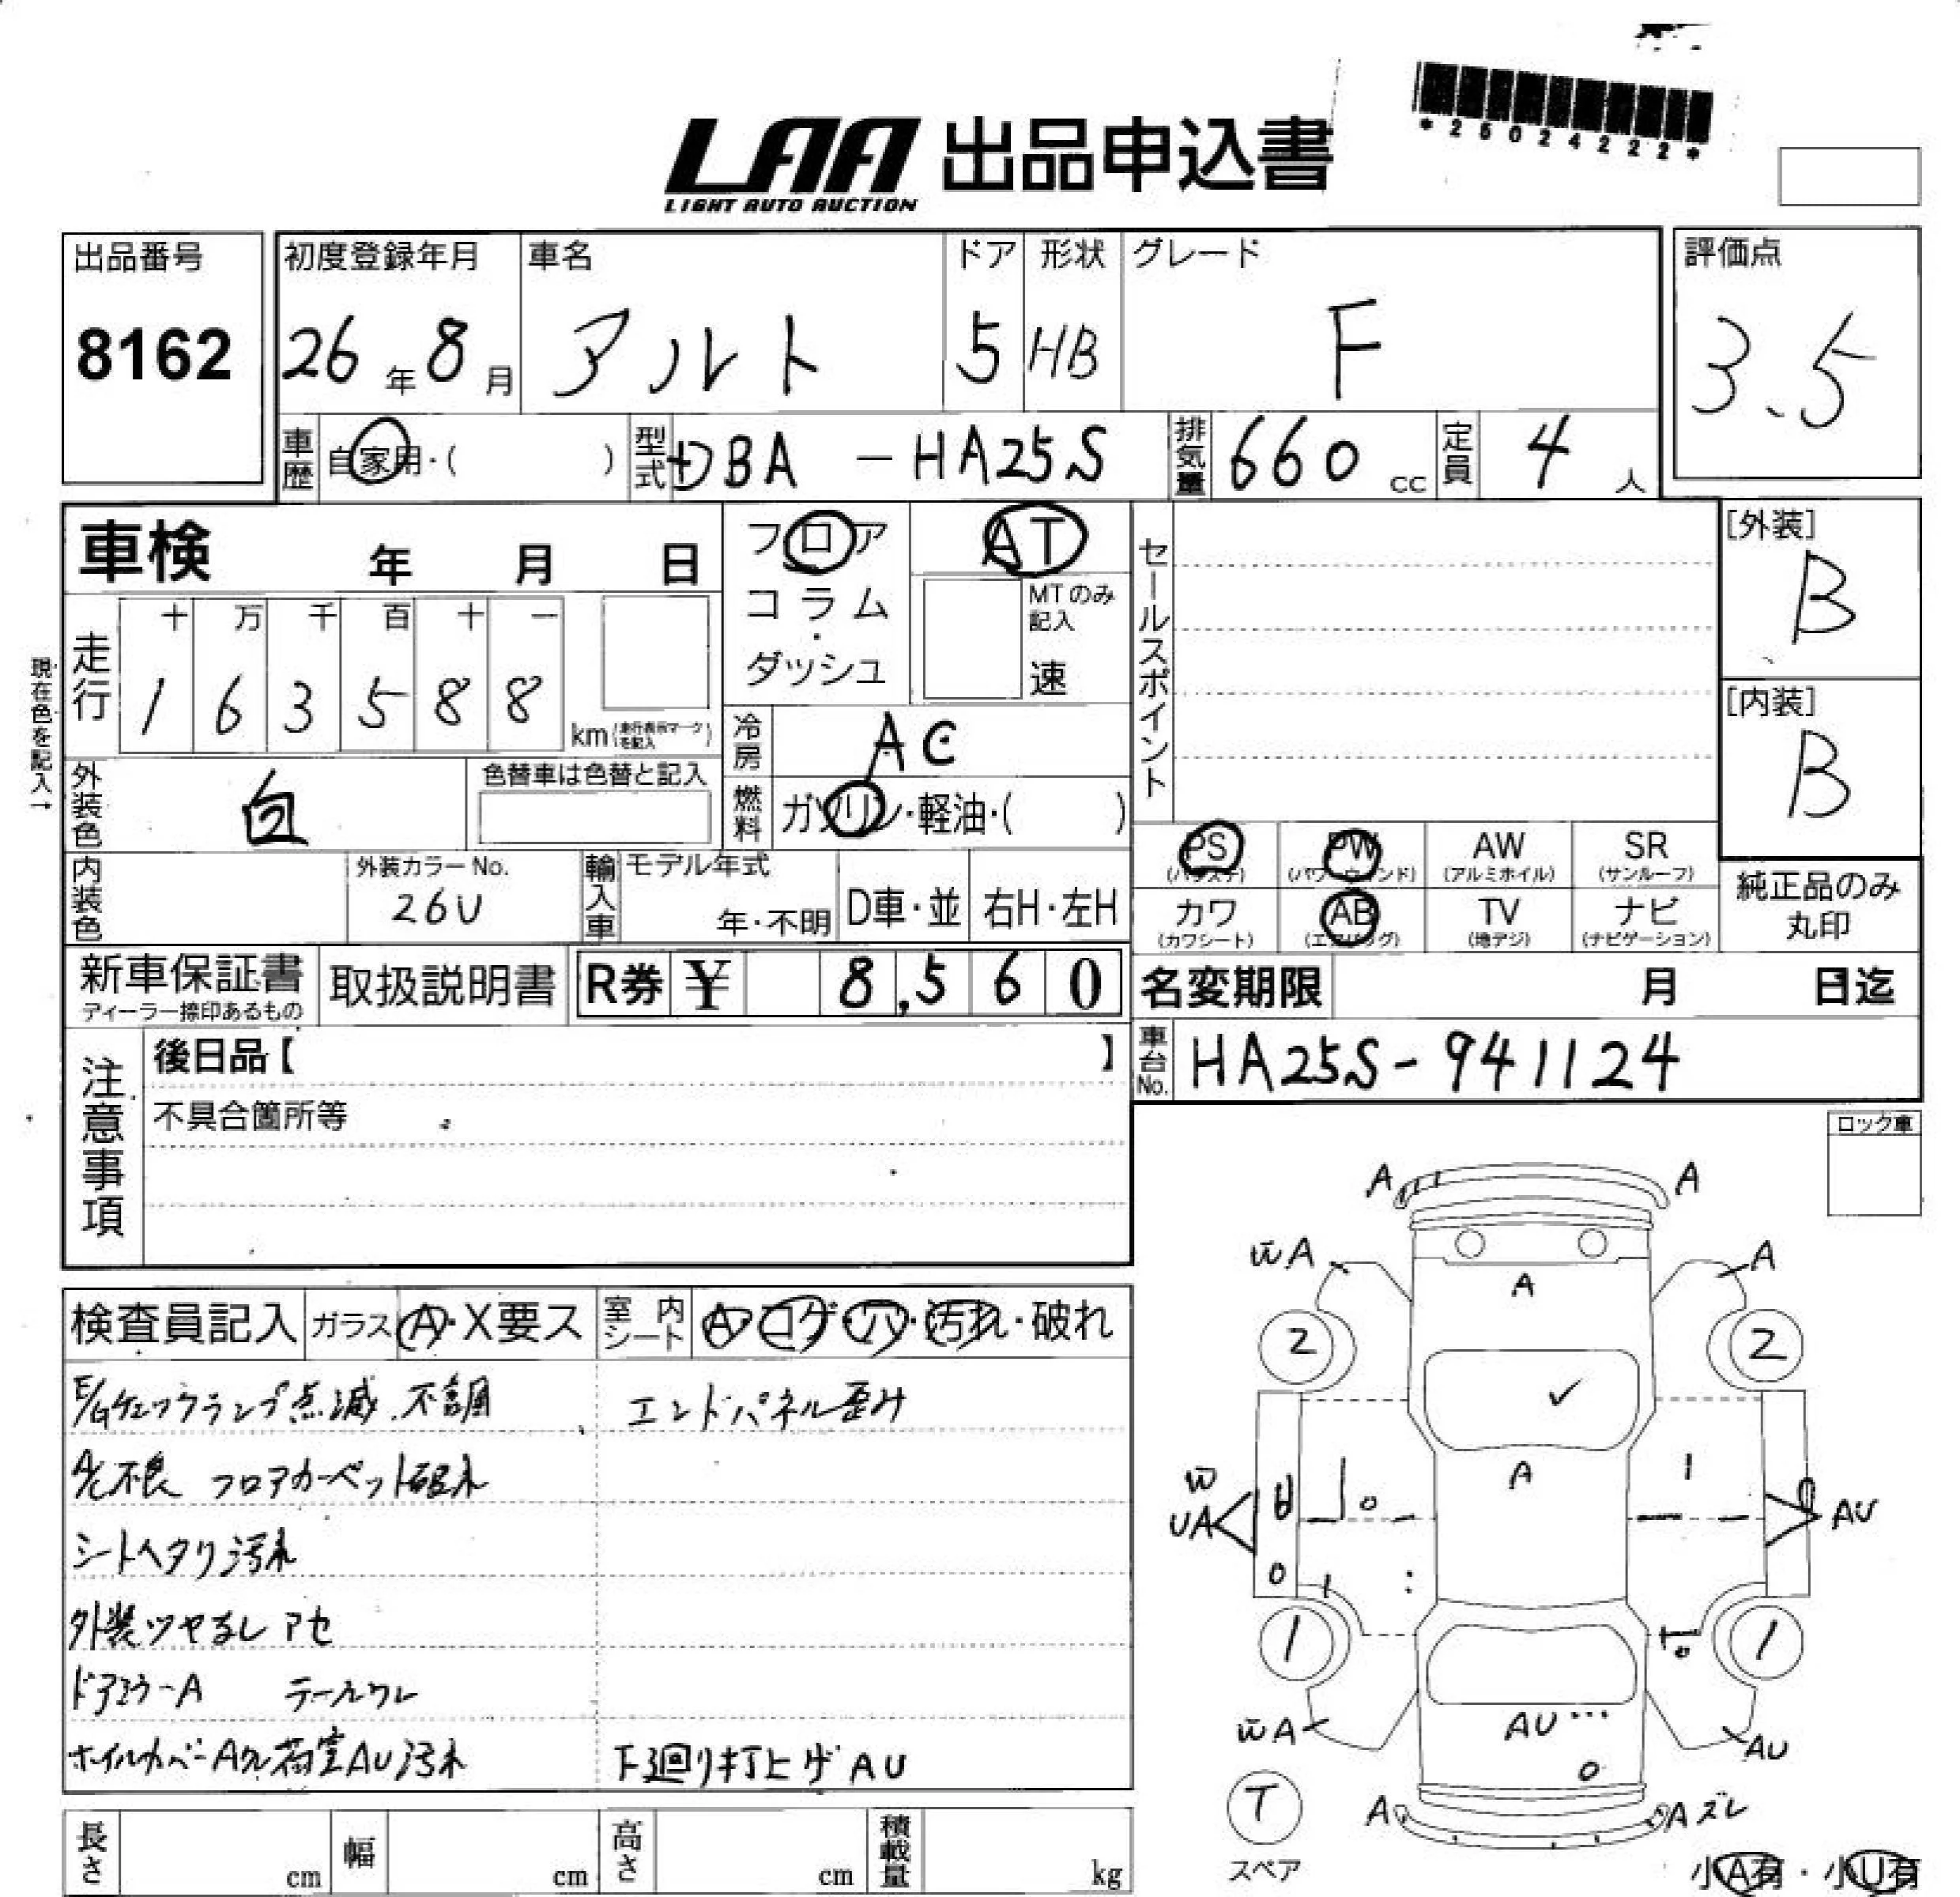 *25024222*
LAA 出品申込書
LIGHT AUTO AUCTION
出品番号 初度登録年月 車名 ドア 形状 グレード 評価点
8162 26年8月 アルト 5 HB F 3.5
車歴 自家用・( ) 型式 DBA - HA25S 排気量 660 cc 定員 4 人
車検 年 月 日 フロア AT セールスポイント [外装]
コラム・ダッシュ MTのみ記入 速 B
走行 十 万 千 百 十 一
1 6 3 5 8 8 km (走行表示マークを記入)
現在色を記入→
冷房 AC [内装]
外装色 白 色替車は色替と記入 燃料 ガソリン・軽油・( ) B
PS (パワステ) PW (パワーウィンド) AW (アルミホイル) SR (サンルーフ)
内装色 外装カラーNo. 26U 輸入車 モデル年式 年・不明 D車・並 右H・左H
カワ (カワシート) AB (エアバッグ) TV (地デジ) ナビ (ナビゲーション) 純正品のみ丸印
新車保証書 ディーラー捺印あるもの 取扱説明書 R券 ¥ 8,560 名変期限 月 日迄
注意事項 後日品【 】 車台No. HA25S-941124
不具合箇所等
ロック車
検査員記入 ガラス A・X要ス 室内シート A・コゲ・穴・汚れ・破れ
E/Gチェックランプ点滅.不調 エンドパネル歪み
A/C不良 フロアカーペット破れ
シートヘタリ汚れ
外装ツヤなし アセ
ドアミラーA テールワレ
ホイルカバーAワレ荷室AU汚れ 下廻り打ヒゲAU
A A
W̄A A A
2 2
A
W̄
UA AU
1 1
W̄A AU AU
T A Aズレ
スペア
小A有・小U有
長さ cm 幅 cm 高さ cm 積載量 kg